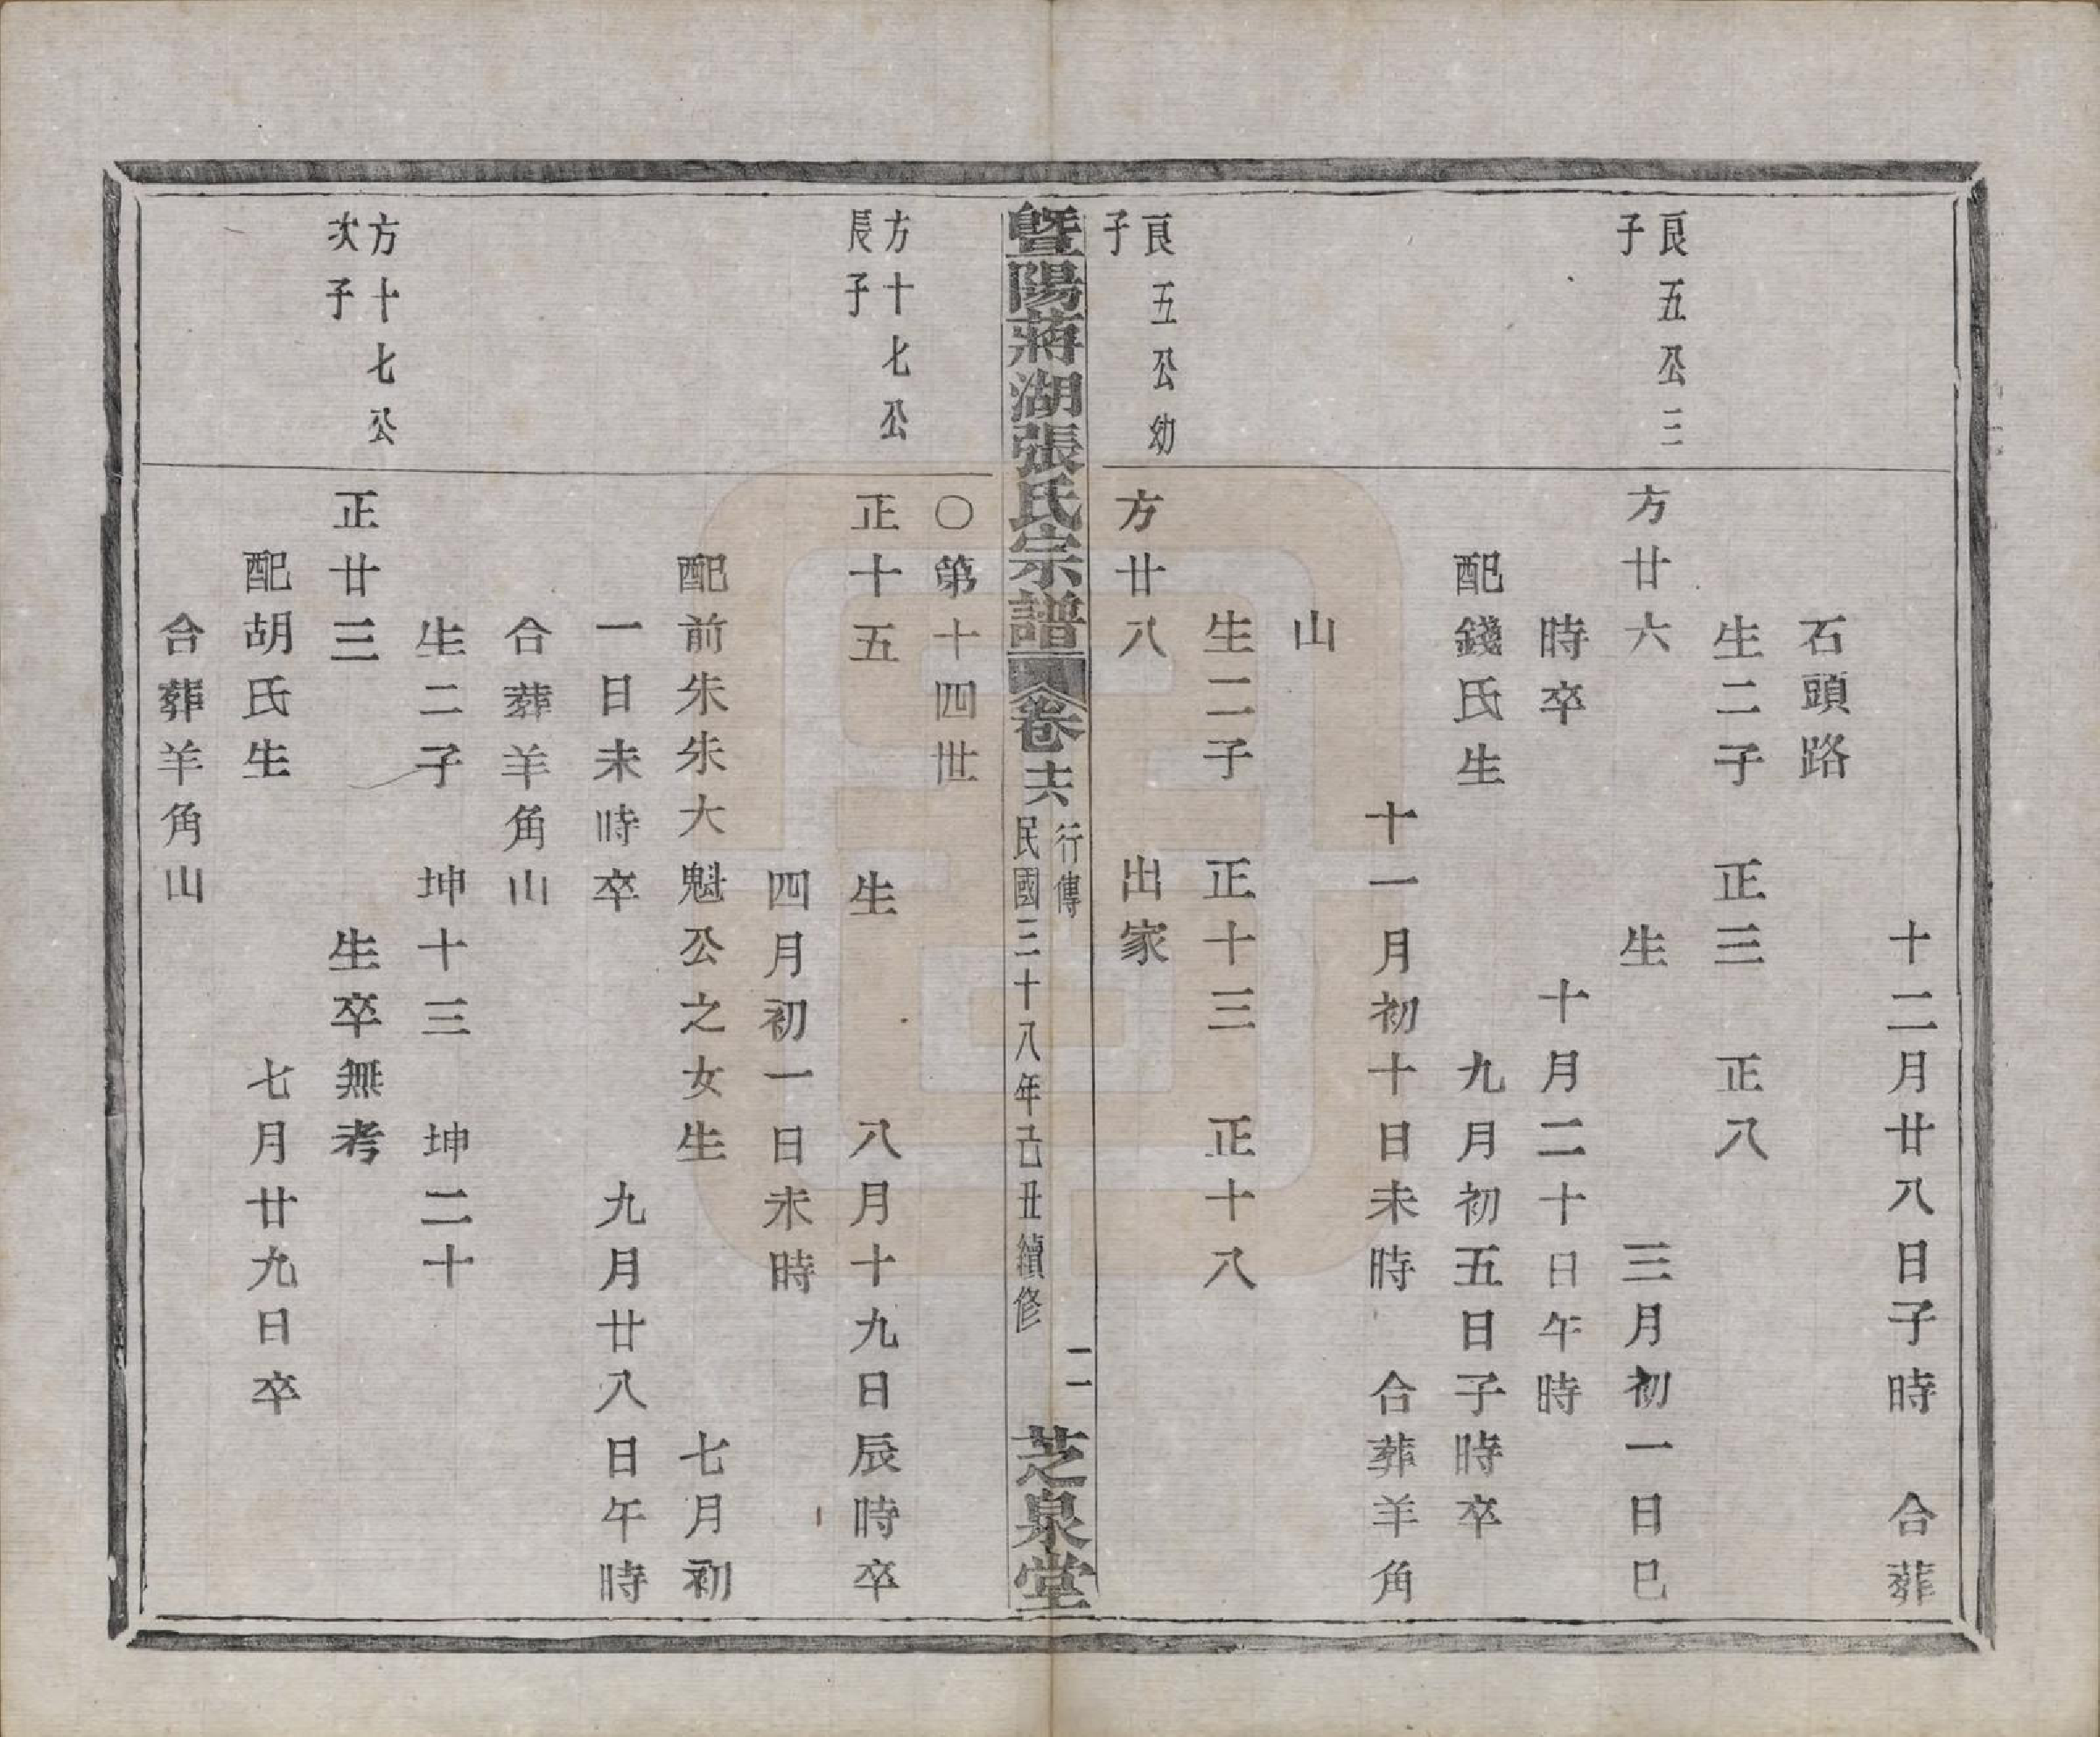 十二月廿八日子時 合葬
石頭路
生二子 正三 正八
良五公三
子
方廿六 生 三月初一日巳
時卒 十月二十日午時
配錢氏生 九月初五日子時卒
十一月初十日未時 合葬羊角
山
生二子 正十三 正十八
良五公幼
子
方廿八 出家
暨陽蔣湖張氏宗譜 卷十六 行傳 民國三十八年己丑續修 二 芝泉堂
○第十四世
方十七公
長子
正十五 生 八月十九日辰時卒
四月初一日未時
配前朱朱大魁公之女生 七月初
一日未時卒 九月廿八日午時
合葬羊角山
生二子 坤十三 坤二十
方十七公
次子
正廿三 生卒無考
配胡氏生 七月廿九日卒
合葬羊角山